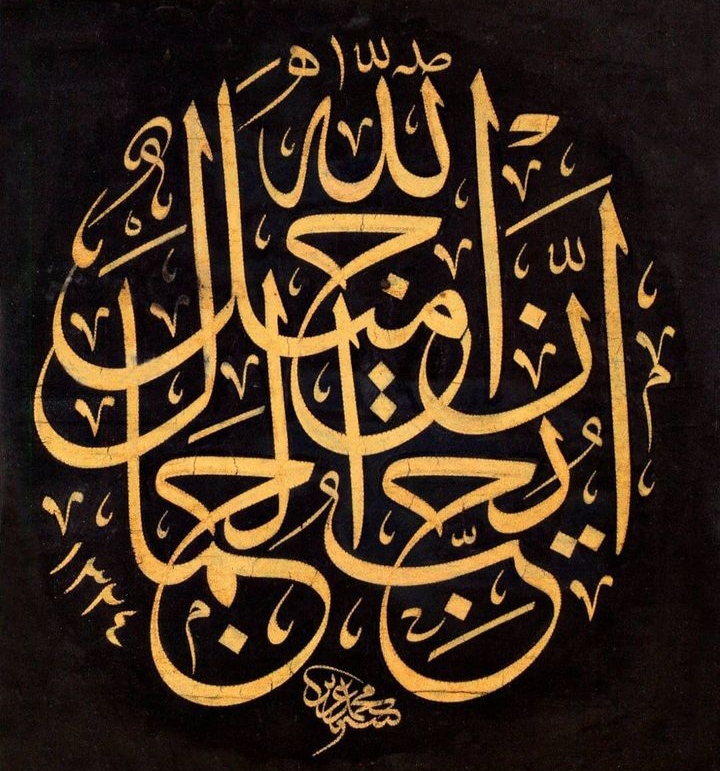 انَّ الله جميلٌ يُحبُّ الجمالَ
١٣٢٤
محمد عزيز